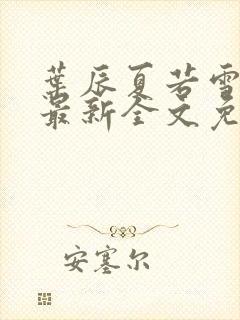 葉辰夏若雪
最新全文免
安塞尔